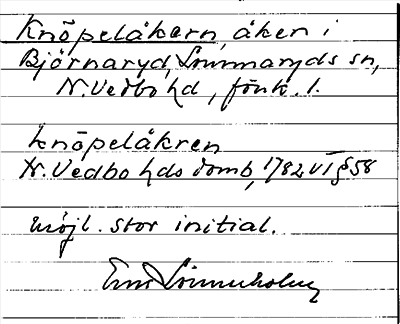 Knöpelåkern, åker i
Björnaryd, Lommaryds sn,
N. Vedbo hd, fönk. 1.
knöpelåkren
N. Vedbo hds domb, 1782 VI § 58
möjl. stor initial.